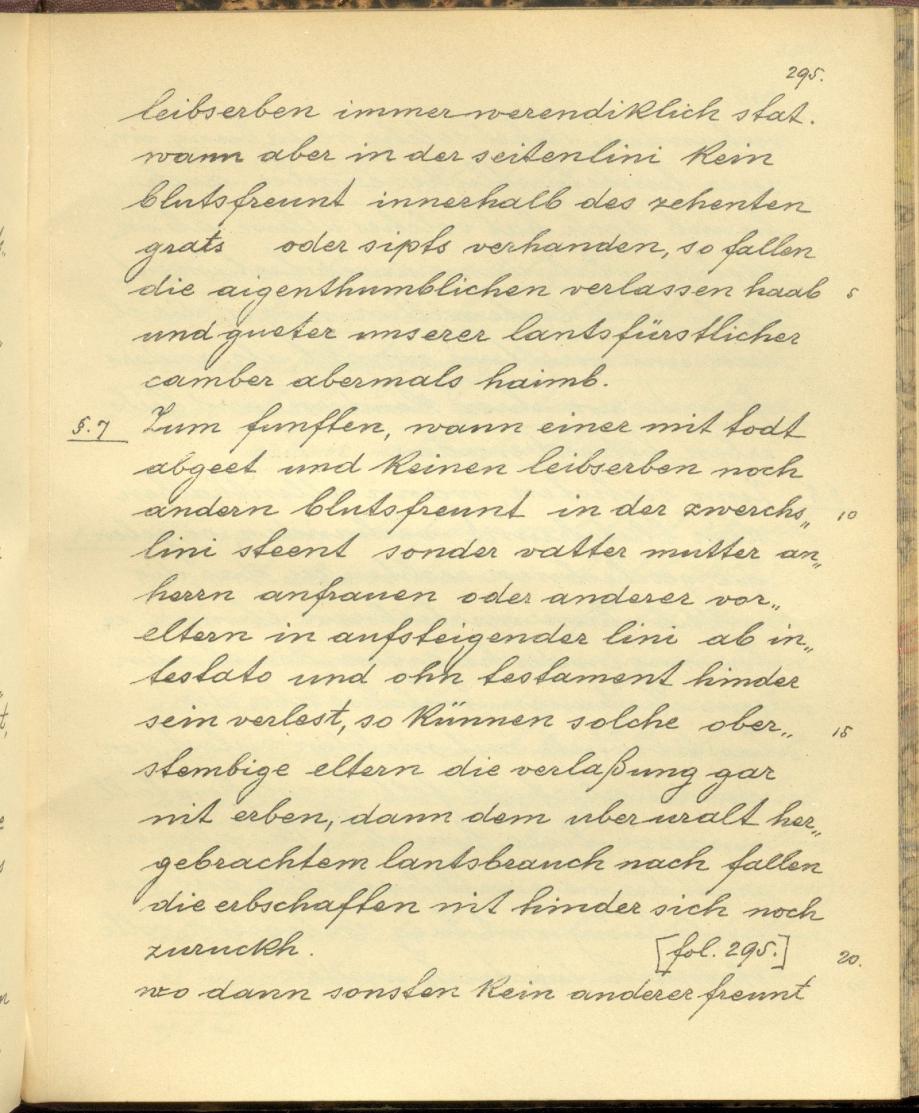 295.
leibserben immer werendiklich stat.
wann aber in der seitenlini kein
blutsfreunt innerhalb des zehenten
grats oder sipts verhanden, so fallen
die aigenthumblichen verlassen haab 5
und gueter unserer lantsfürstlicher
camber abermals haimb.
§. 7 Zum funften, wann einer mit todt
abgeet und keinen leibserben noch
andern blutsfreunt in der zwerchs„ 10
lini steent sonder vatter mutter an„
herrn anfrauen oder anderer vor„
eltern in aufsteigender lini ab in„
testato und ohn testament hinder
sein verlest, so künnen solche ober„ 15
stembige eltern die verlaßung gar
nit erben, dann dem uberuralt her„
gebrachtem lantsbrauch nach fallen
die erbschaften nit hinder sich noch
zuruckh. [fol. 295.] 20.
wo dann sonsten kein anderer freunt